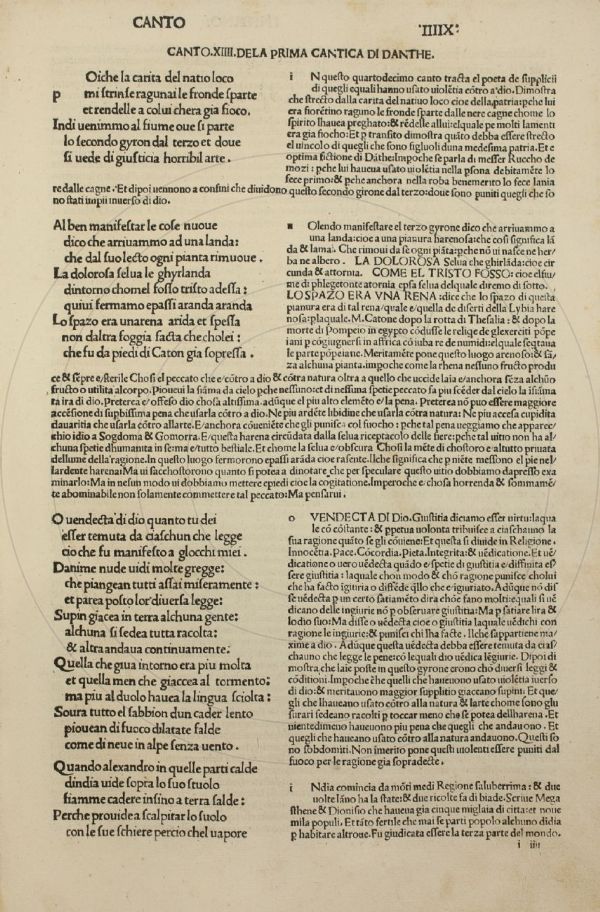 CANTO
IIIIX
CANTO.XIIII.DELA PRIMA CANTICA DI DANTHE.
p
Oiche la carita del natio loco
mi strinse ragunai le fronde sparte
et rendelle a colui chera gia fioco.
Indi uenimmo al fiume oue si parte
lo secondo gyron dal terzo et doue
si uede di giusticia horribil arte.
i
N questo quartodecimo canto tracta el poeta de supplicii
di quegli equali hanno usato uiolētia cōtro a'dio. Dimostra
che strecto dalla carita del natiuo luoco cioe della patria: pche lui
era fiorētino raguno le fronde sparte dalle nere cagne chome lo
spirito lhauea preghato: & rēdelle allui: elquale pe molti lamenti
era gia fiocho: Et p transito dimostra quāto debba essere strecto
el uincolo di quegli che sono figluoli duna medesima patria. Et e
optima fictione di Dāthe: Impoche se parla di messer Ruccho de
mozi: pche lui haueua usato uiolētia nella psona debitamēte lo
fece primo: & pche anchora nella roba benemerito lo fece lania
re dalle cagne. Et dipoi uennono a confini che diuidono questo secondo girone dal terzo: doue sono puniti quegli che so
no stati impii inuerso di dio.
Al ben manifestar le cose nuoue
dico che arriuammo ad una landa:
che dal suo lecto ogni pianta rimuoue.
La dolorosa selua le ghyrlanda
dintorno chomel fosso tristo adessa:
quiui fermamo epassi aranda aranda
Lo spazo era unarena arida et spessa
non daltra foggia facta che cholei:
che fu da piedi di Caton gia sopressa.
Olendo manifestare el terzo gyrone dico che arriuammo a
una landa: cioe a una pianura harenosa: che cosi significa lā
da & lama. Che rimoui da se ogni piāta: pche nō ui nasce ne her/
ba ne albero. LA DOLOROSA Selua che ghirlāda: cioe cir
cunda & attornia. COME EL TRISTO FOSSO: cioe elfiu/
me di phlegetonte atornia epsa selua delquale diremo di sotto.
LO SPAZO ERA VNA RENA: dice che lo spazo di questa
pianura era di tal rena/quale e/quella de diserti della Lybia hare
nosa: plaquale. M. Catone dopo la rotta di Thesalia: & dopo la
morte di Pompeio in egypto cōdusse le reliqe de glexerciti pōpe
iani p cogiugnersi in affrica cō iuba re de numidi: elquale seqtana
le parte pōpeiane. Meritamēte pone questo luogo arenoso: & sā
za alchuna pianta. impoche come la rhena nessuno fructo produ
ce & sēpre e/sterile Chosi el peccato che e/cōtro a dio & cōtra natura oltra a quello che uccide laīa e/anchora seza alchūo
fructo o utilita alcorpo. Piouēui la fiāma da cielo pche nessuno: et di nessuna spetie peccato fa piu scēder dal cielo la īfiāma
ta ira di dio. Preterea e/offeso dio chosa altissima. adūque el piu alto elemēto e/la pena. Preterea nō puo essere maggiore
accēsione di supbissima pena che usarla cōtro a dio. Ne piu ardēte libidine che usarla cōtra natura: Ne piu accesa cupidita
dauaritia che usarla cōtro allarte. E/anchora cōueniēte che gli punisca col fuocho: pche tal pena ueggiamo che apparec/
chio idio a Sogdoma & Gomorra. E/questa harena circūdata dalla selua riceptacolo delle fiere: pche tal uitio non ha al/
chuna spetie dhumanita in se ma e/tutto bestiale. Et chome la selua e/obscura Chosi la mēte di chostoro e/altutto priuata
dellume della ragione. In questo luogo fermorono epassi arāda arāda cioe rasente rasente. Ilche significa che p niēte messono el pie nel/
lardente harena: Ma ui saccostorono quanto si potea a dinotare che per speculare questo uitio dobbiamo dapresso exa
minarlo: Ma in nesun modo ui dobbiamo mettere epiedi cioe la cogitatione. Impoche e/chosa horrenda & sommamē/
te abominabile non solamente commettere tal peccato: Ma pensarui.
O uendecta di dio quanto tu dei
esser temuta da ciaschun che legge
cio che fu manifesto a glocchi miei.
Danime nude uidi molte gregge:
che piangean tutti assai miseramente:
et parea posto lor diuersa legge:
Supin giacea in terra alchuna gente:
alchuna si sedea tutta racolta:
& altra andaua continuamente.
Quella che giua intorno era piu molta
et quella men che giaccea al tormento:
ma piu al duolo hauea la lingua sciolta:
Soura tutto el sabbion dun cader lento
piouean di fuoco dilatate falde
come di neue in alpe senza uento.
o
VENDECTA DI Dio. Giustitia diciamo esser uirtu: laqua
le cō cōstante: & ppetua uolonta tribuisce a ciaschauno la
sua ragione quāto se gli cōuiene: Et questa si diuide in Religione.
Innocētia. Pace. Cōcordia. Pieta. Integrita: & uēdicatione. Et uē
dicatione o uero uēdecta quādo e/spetie di giustitia e/diffinita es
sere giustitia: laquale chon modo & chō ragione punisce cholui
che ha facto īgiuria o dissēde qllo che e/iguriato. Adūque nō di
se uēdecta p un certo sfatiamēto dira chōe fano molti: equali si uē
dicano delle ingiurie nō p obseruare giustitia: Ma p satiare lira &
lodio suo: Ma disse o uēdecta cioe o giustitia laquale uēdichi con
ragione le ingiurie: & punisci chi lha facte. Ilche sappartiene ma/
xime a dio. Adūque questa uēdecta debba essere temuta da cias/
chauno che legge le pene: cō lequali dio uēdica lēgiurie. Dipoi di
mostra, che laīe poste in questo gyrone erono chō diuersi leggi &
cōditioni. Impoche ēche quelli che haueuono usato uiolētia iuerso
di dio: & meritauono maggior supplitio giaccano supini. Et que/
gli che lhaueano usato cōtro alla natura & larte chome sono glu
surari sedeano racolti p toccar meno che se potea dellharena. Et
nientedimeno haueuono piu pena che quegli che andauono. Et
quegli che haueano usato cōtro alla natura andauono. Questi so
no sobdomiti. Non imerito pone questi uiolenti essere puniti dal
fuoco per le ragione gia sopradecte.
Quando alexandro in quelle parti calde
dindia uide sopra lo suo stuolo
fiamme cadere insino a terra salde:
Perche prouide a scalpitar lo suolo
con le sue schiere percio chel uapore
i
Ndia comincia da mōti medi Regione saluberrima: & due
uolte lāno ha la state: & due ricolte fa di biade. Scriue Mega
sthene & Dionisio che haueua gia cinque miglaia di citta: et noue
mila populi. Et tāto fertile che mai se parti popolo alchuno didia
p habitare altroue. Fu giudicata essere la terza parte del mondo.
i iiii